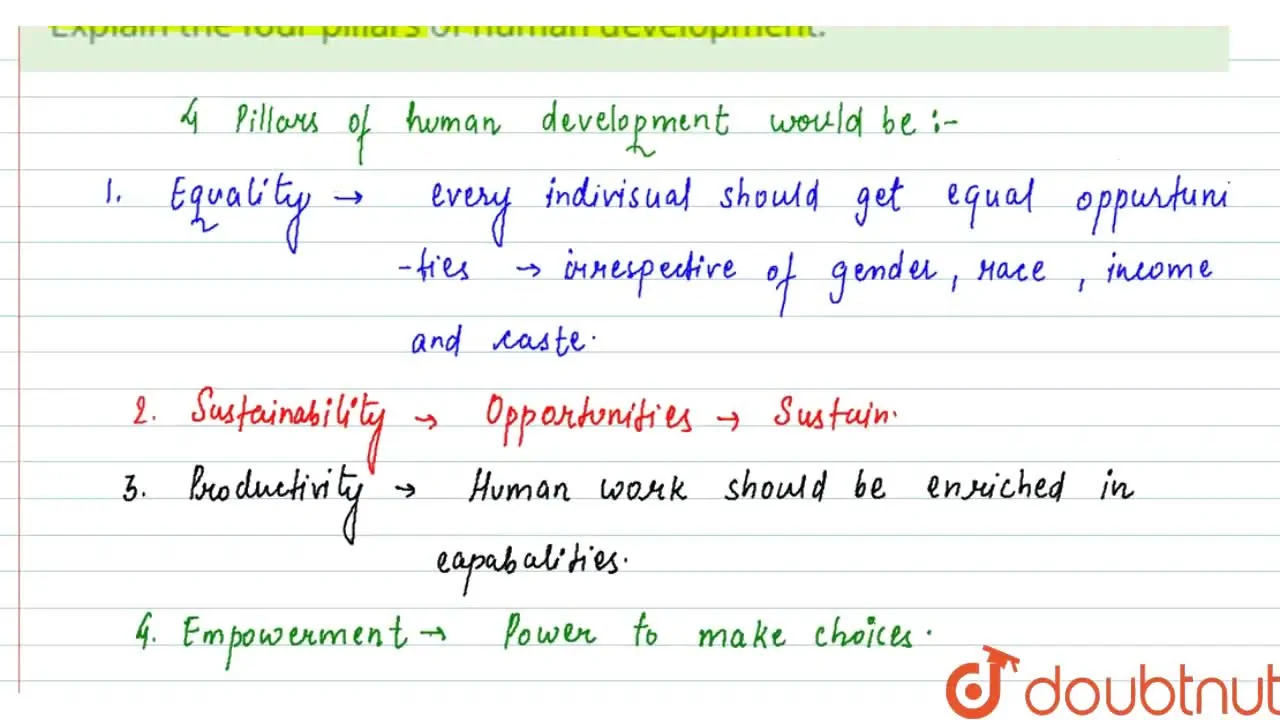 Explain the four pillars of human development.
4 Pillars of human development would be :-
1. Equality → every indivisual should get equal oppurtuni
-ties → irrespective of gender, race, income
and caste.
2. Sustainability → Opportunities → Sustain.
3. Productivity → Human work should be enriched in
capabalities.
4. Empowerment → Power to make choices.
doubtnut